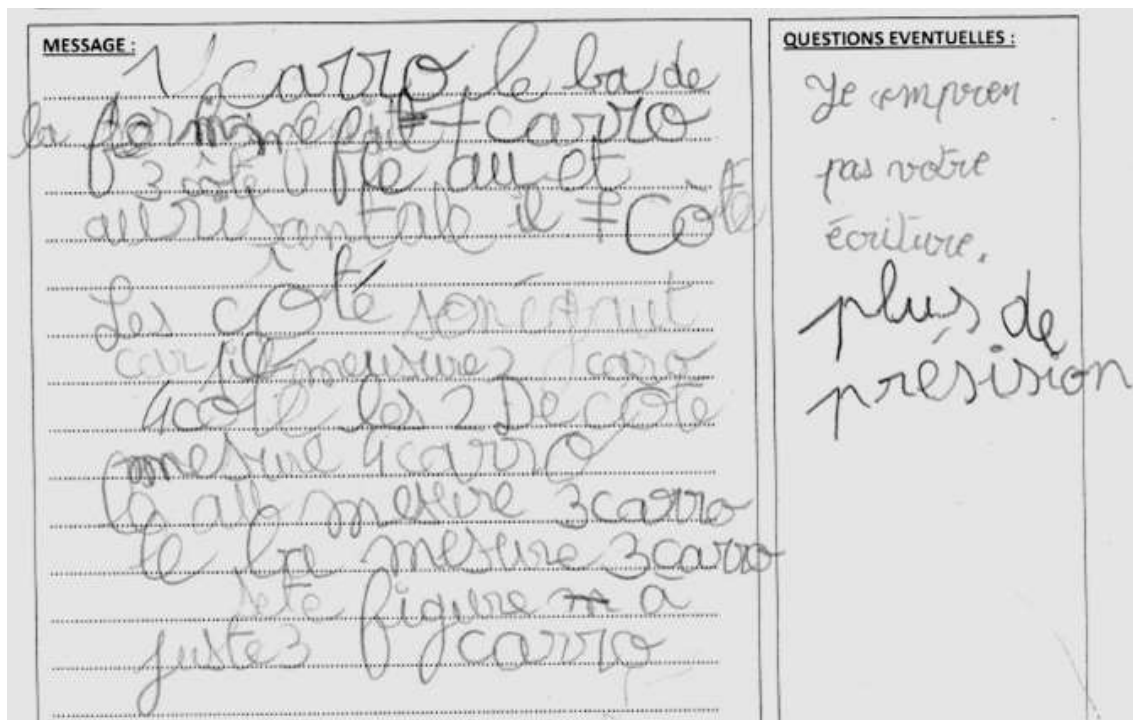 MESSAGE :
1 carro le ba de
la forme fait 7 carro
3 côté au et
il 7 Côté
Les côté son
car il meusure 3 caro
4 coté les 2 De coté
mesure 4 carro
mesure 3 carro
le ba mesure 3 carro
figure a
juste 3 carro
QUESTIONS EVENTUELLES :
Je compren
pas votre
écriture.
plus de
présision